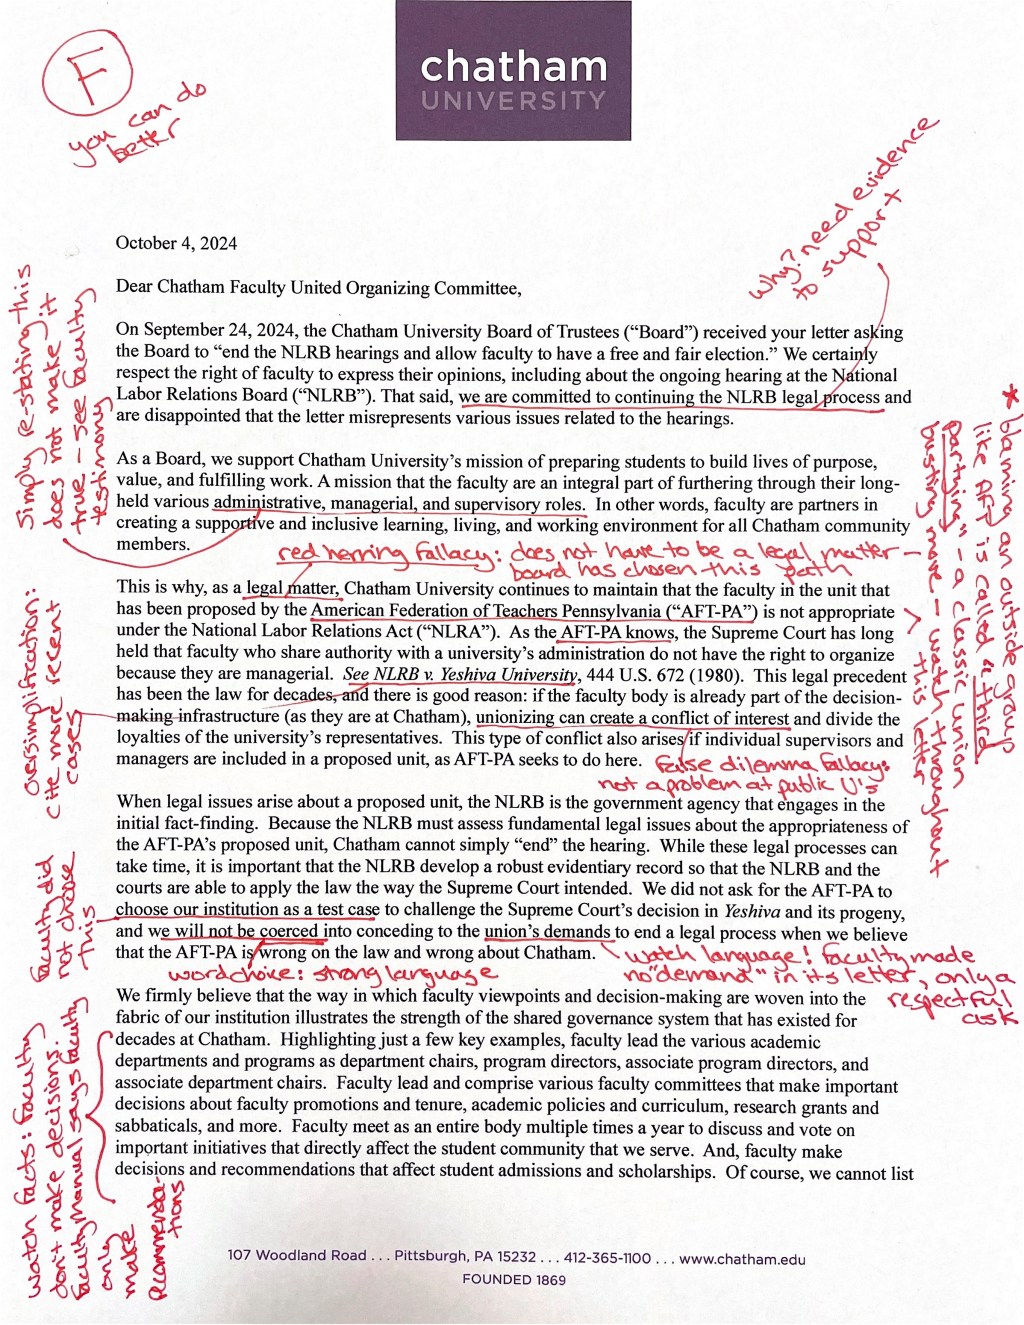 F
you can do
better
chatham
UNIVERSITY
Why? need evidence
to support
October 4, 2024
Dear Chatham Faculty United Organizing Committee,
On September 24, 2024, the Chatham University Board of Trustees (“Board”) received your letter asking
the Board to “end the NLRB hearings and allow faculty to have a free and fair election.” We certainly
respect the right of faculty to express their opinions, including about the ongoing hearing at the National
Labor Relations Board (“NLRB”). That said, we are committed to continuing the NLRB legal process and
are disappointed that the letter misrepresents various issues related to the hearings.
Simply re-stating this
does not make it
true - see faculty
testimony
As a Board, we support Chatham University’s mission of preparing students to build lives of purpose,
value, and fulfilling work. A mission that the faculty are an integral part of furthering through their long-
held various administrative, managerial, and supervisory roles. In other words, faculty are partners in
creating a supportive and inclusive learning, living, and working environment for all Chatham community
members.
red herring fallacy: does not have to be a legal matter -
board has chosen this path
* blaming an outside group
like AFT is called "third
partying" - a classic union
busting move - watch throughout
this letter
This is why, as a legal matter, Chatham University continues to maintain that the faculty in the unit that
has been proposed by the American Federation of Teachers Pennsylvania (“AFT-PA”) is not appropriate
under the National Labor Relations Act (“NLRA”). As the AFT-PA knows, the Supreme Court has long
held that faculty who share authority with a university’s administration do not have the right to organize
because they are managerial. See NLRB v. Yeshiva University, 444 U.S. 672 (1980). This legal precedent
has been the law for decades, and there is good reason: if the faculty body is already part of the decision-
making infrastructure (as they are at Chatham), unionizing can create a conflict of interest and divide the
loyalties of the university’s representatives. This type of conflict also arises if individual supervisors and
managers are included in a proposed unit, as AFT-PA seeks to do here.
false dilemma fallacy:
not a problem at public U's
oversimplification:
cite more recent
cases
When legal issues arise about a proposed unit, the NLRB is the government agency that engages in the
initial fact-finding. Because the NLRB must assess fundamental legal issues about the appropriateness of
the AFT-PA’s proposed unit, Chatham cannot simply “end” the hearing. While these legal processes can
take time, it is important that the NLRB develop a robust evidentiary record so that the NLRB and the
courts are able to apply the law the way the Supreme Court intended. We did not ask for the AFT-PA to
choose our institution as a test case to challenge the Supreme Court’s decision in Yeshiva and its progeny,
and we will not be coerced into conceding to the union’s demands to end a legal process when we believe
that the AFT-PA is wrong on the law and wrong about Chatham.
faculty did
not choose
this
word choice: strong language
watch language! faculty made
no "demand" in its letter, only a
respectful
ask
We firmly believe that the way in which faculty viewpoints and decision-making are woven into the
fabric of our institution illustrates the strength of the shared governance system that has existed for
decades at Chatham. Highlighting just a few key examples, faculty lead the various academic
departments and programs as department chairs, program directors, associate program directors, and
associate department chairs. Faculty lead and comprise various faculty committees that make important
decisions about faculty promotions and tenure, academic policies and curriculum, research grants and
sabbaticals, and more. Faculty meet as an entire body multiple times a year to discuss and vote on
important initiatives that directly affect the student community that we serve. And, faculty make
decisions and recommendations that affect student admissions and scholarships. Of course, we cannot list
watch facts: faculty
don't make decisions.
faculty manual says faculty
only
make
recommenda-
tions
107 Woodland Road . . . Pittsburgh, PA 15232 . . . 412-365-1100 . . . www.chatham.edu
FOUNDED 1869